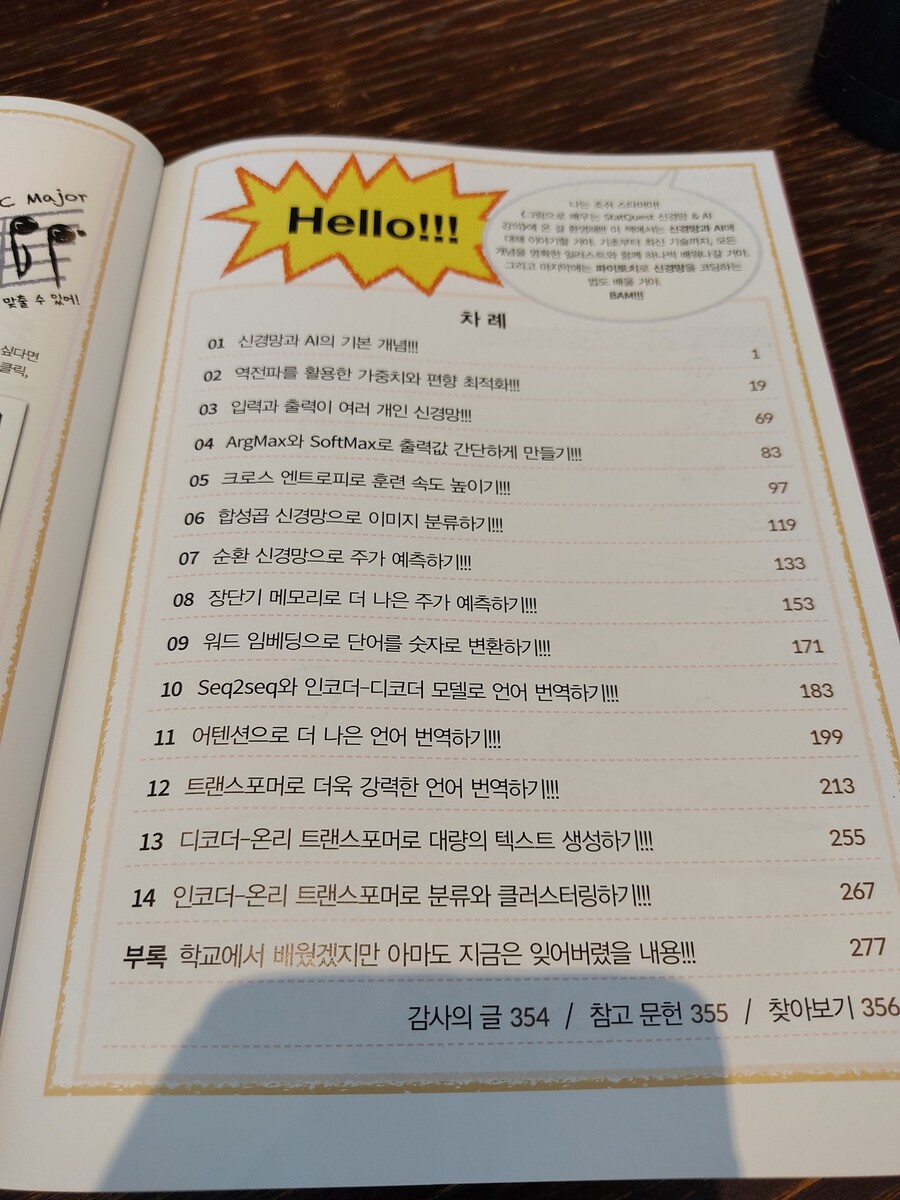 C Major
맞출 수 있어!
싶다면
클릭,
Hello!!!
나는 조쉬 스타머야!
《그림으로 배우는 StatQuest 신경망 & AI
강의》에 온 걸 환영해!!! 이 책에서는 신경망과 AI에
대해 이야기할 거야. 기초부터 최신 기술까지, 모든
개념을 명확한 일러스트와 함께 하나씩 배워나갈 거야.
그리고 마지막에는 파이토치로 신경망을 코딩하는
법도 배울 거야.
BAM!!!
차례
01 신경망과 AI의 기본 개념!!! 1
02 역전파를 활용한 가중치와 편향 최적화!!! 19
03 입력과 출력이 여러 개인 신경망!!! 69
04 ArgMax와 SoftMax로 출력값 간단하게 만들기!!! 83
05 크로스 엔트로피로 훈련 속도 높이기!!! 97
06 합성곱 신경망으로 이미지 분류하기!!! 119
07 순환 신경망으로 주가 예측하기!!! 133
08 장단기 메모리로 더 나은 주가 예측하기!!! 153
09 워드 임베딩으로 단어를 숫자로 변환하기!!! 171
10 Seq2seq와 인코더-디코더 모델로 언어 번역하기!!! 183
11 어텐션으로 더 나은 언어 번역하기!!! 199
12 트랜스포머로 더욱 강력한 언어 번역하기!!! 213
13 디코더-온리 트랜스포머로 대량의 텍스트 생성하기!!! 255
14 인코더-온리 트랜스포머로 분류와 클러스터링하기!!! 267
부록 학교에서 배웠겠지만 아마도 지금은 잊어버렸을 내용!!! 277
감사의 글 354 / 참고 문헌 355 / 찾아보기 356